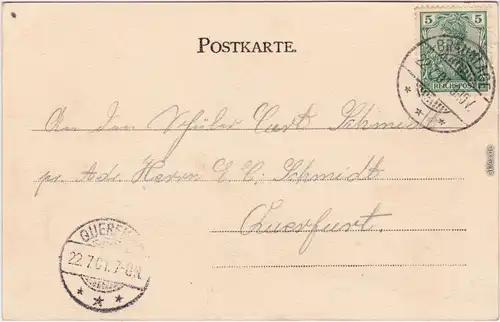 POSTKARTE.
5 5
REICHSPOST
An den Schüler Curt Schmidt
pr. Adr. Herrn C. C. Schmidt
Querfurt.
QUERFU
22.7.01.7-8.N.